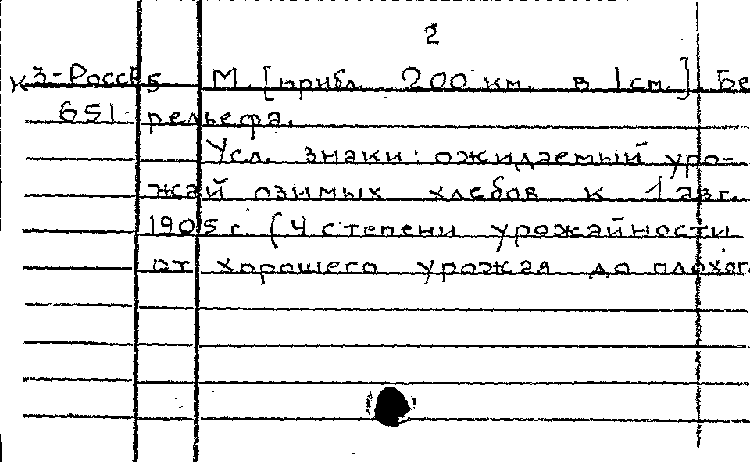 2
К3-Росс Б М [прибл. 200 км. в 1см.] Бе
651 рельефа.
Усл. знаки: ожидаемый уро-
жай озимых хлебов к 1 авг.
1905 г. (4 степени урожайности
от хорошего урожая до плохог